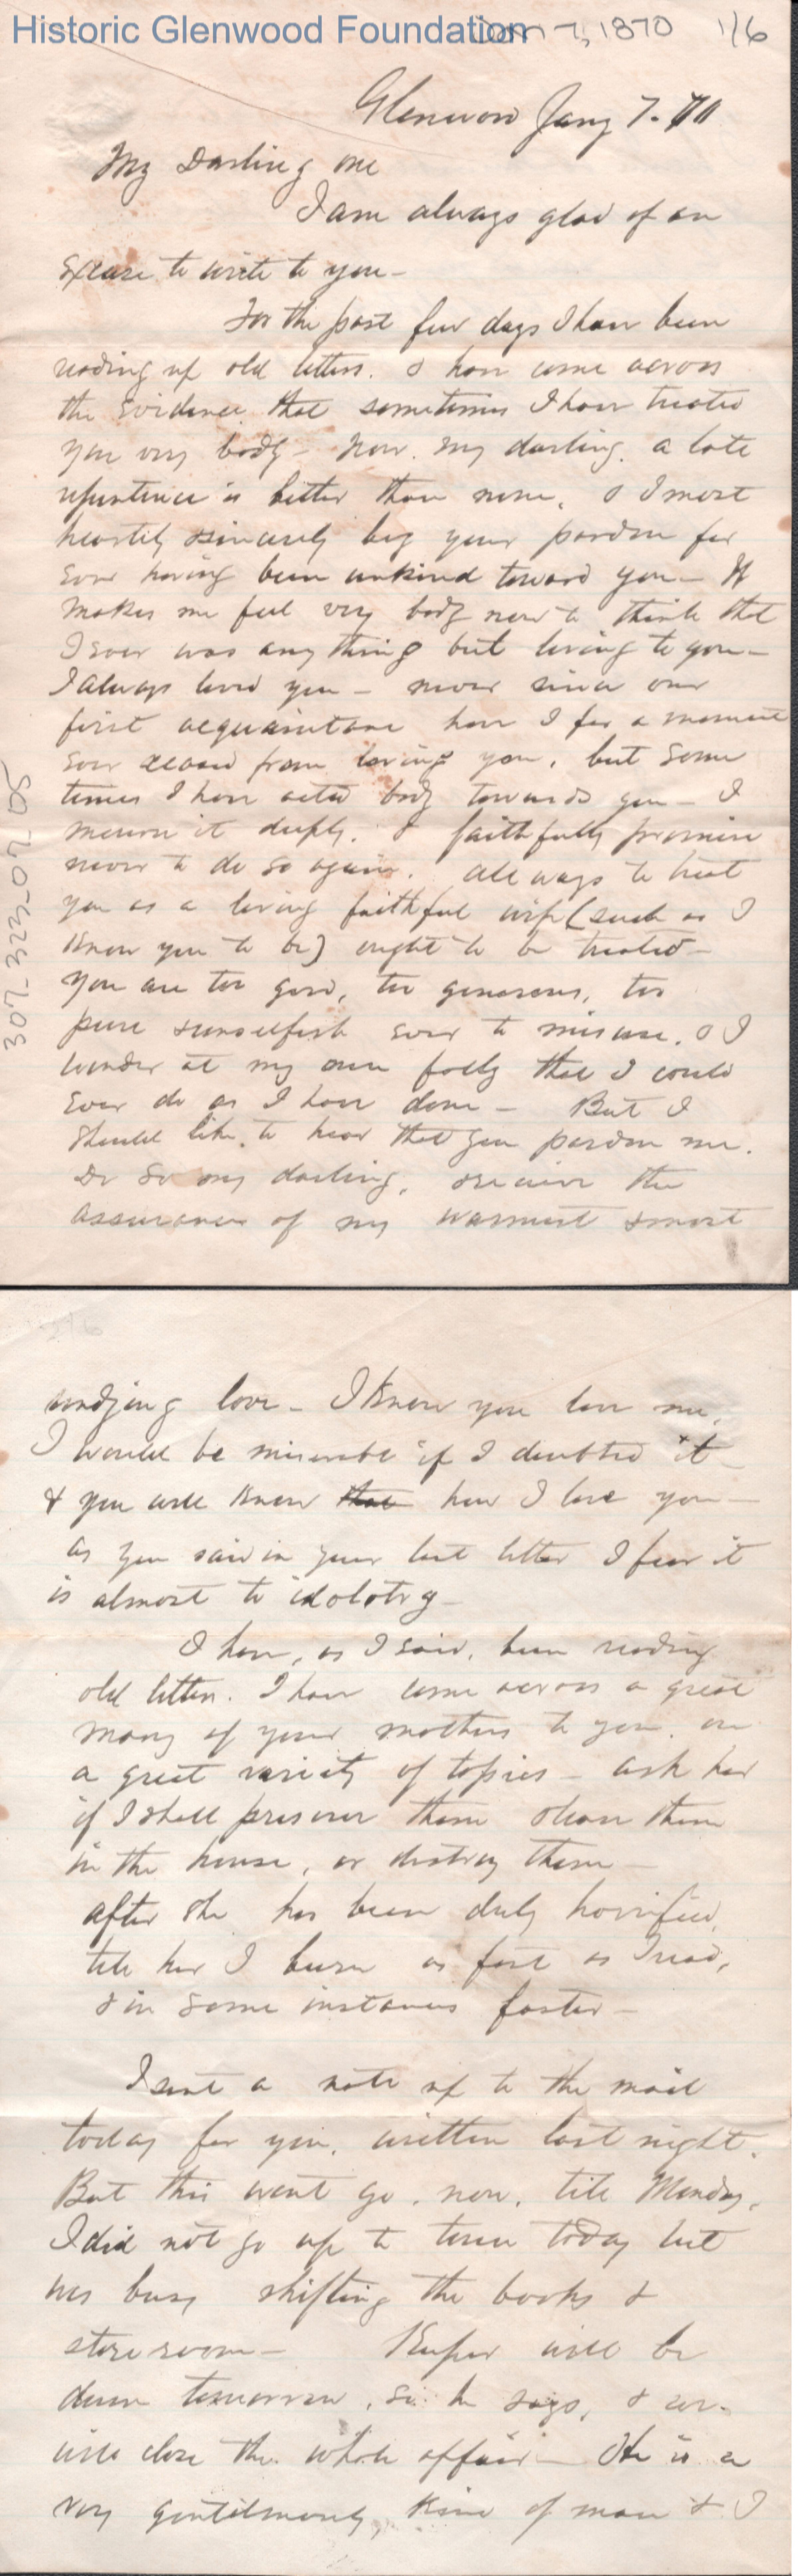 Historic Glenwood Foundation
Jan 7, 1870 1/6
Glenwood Jany 7. 70
My Darling one
I am always glad of an
excuse to write to you -
For the past few days I have been
reading up old letters. & have come across
the evidence that sometimes I have treated
you very badly - now. my darling. a late
repentence is better than none, & I most
heartily & sincerely beg your pardon for
ever having been unkind toward you - It
makes me feel very badly now to think that
I ever was any thing but loving to you -
I always loved you - never since our
first acquaintance have I for a moment
ever ceased from loving you, but some
times I have acted badly towards you - I
mourn it deeply. & faithfully promise
never to do so again. always to treat
you as a loving faithful wife (such as I
know you to be) ought to be treated -
You are too good, too generous, too
pure & unselfish ever to misuse. & I
wonder at my own folly that I could
ever do as I have done - But I
should like to hear that you pardon me.
Do so my darling, & receive the
assurance of my warmest & most
307_323_07_05
undying love - I know you love me,
I would be miserable if I doubted it -
& you well know that how I love you -
as you said in your last letter I fear it
is almost to idolatry -
I have, as I said, been reading
old letters. I have come across a great
many of your mothers to you. on
a great variety of topics - ask her
if I shall preserve them & have them
in the house, or destroy them -
after she has been duly horrified,
tell her I burn as fast as I read,
& in some instances faster -
I sent a note up to the mail
today for you, written last night.
But this wont go. now. till Monday,
I did not go up to town today but
was busy shifting the books &
store room - will be
down tomorrow, so he says, & we
will close the whole affair - He is a
very gentlemanly, kind of man & I